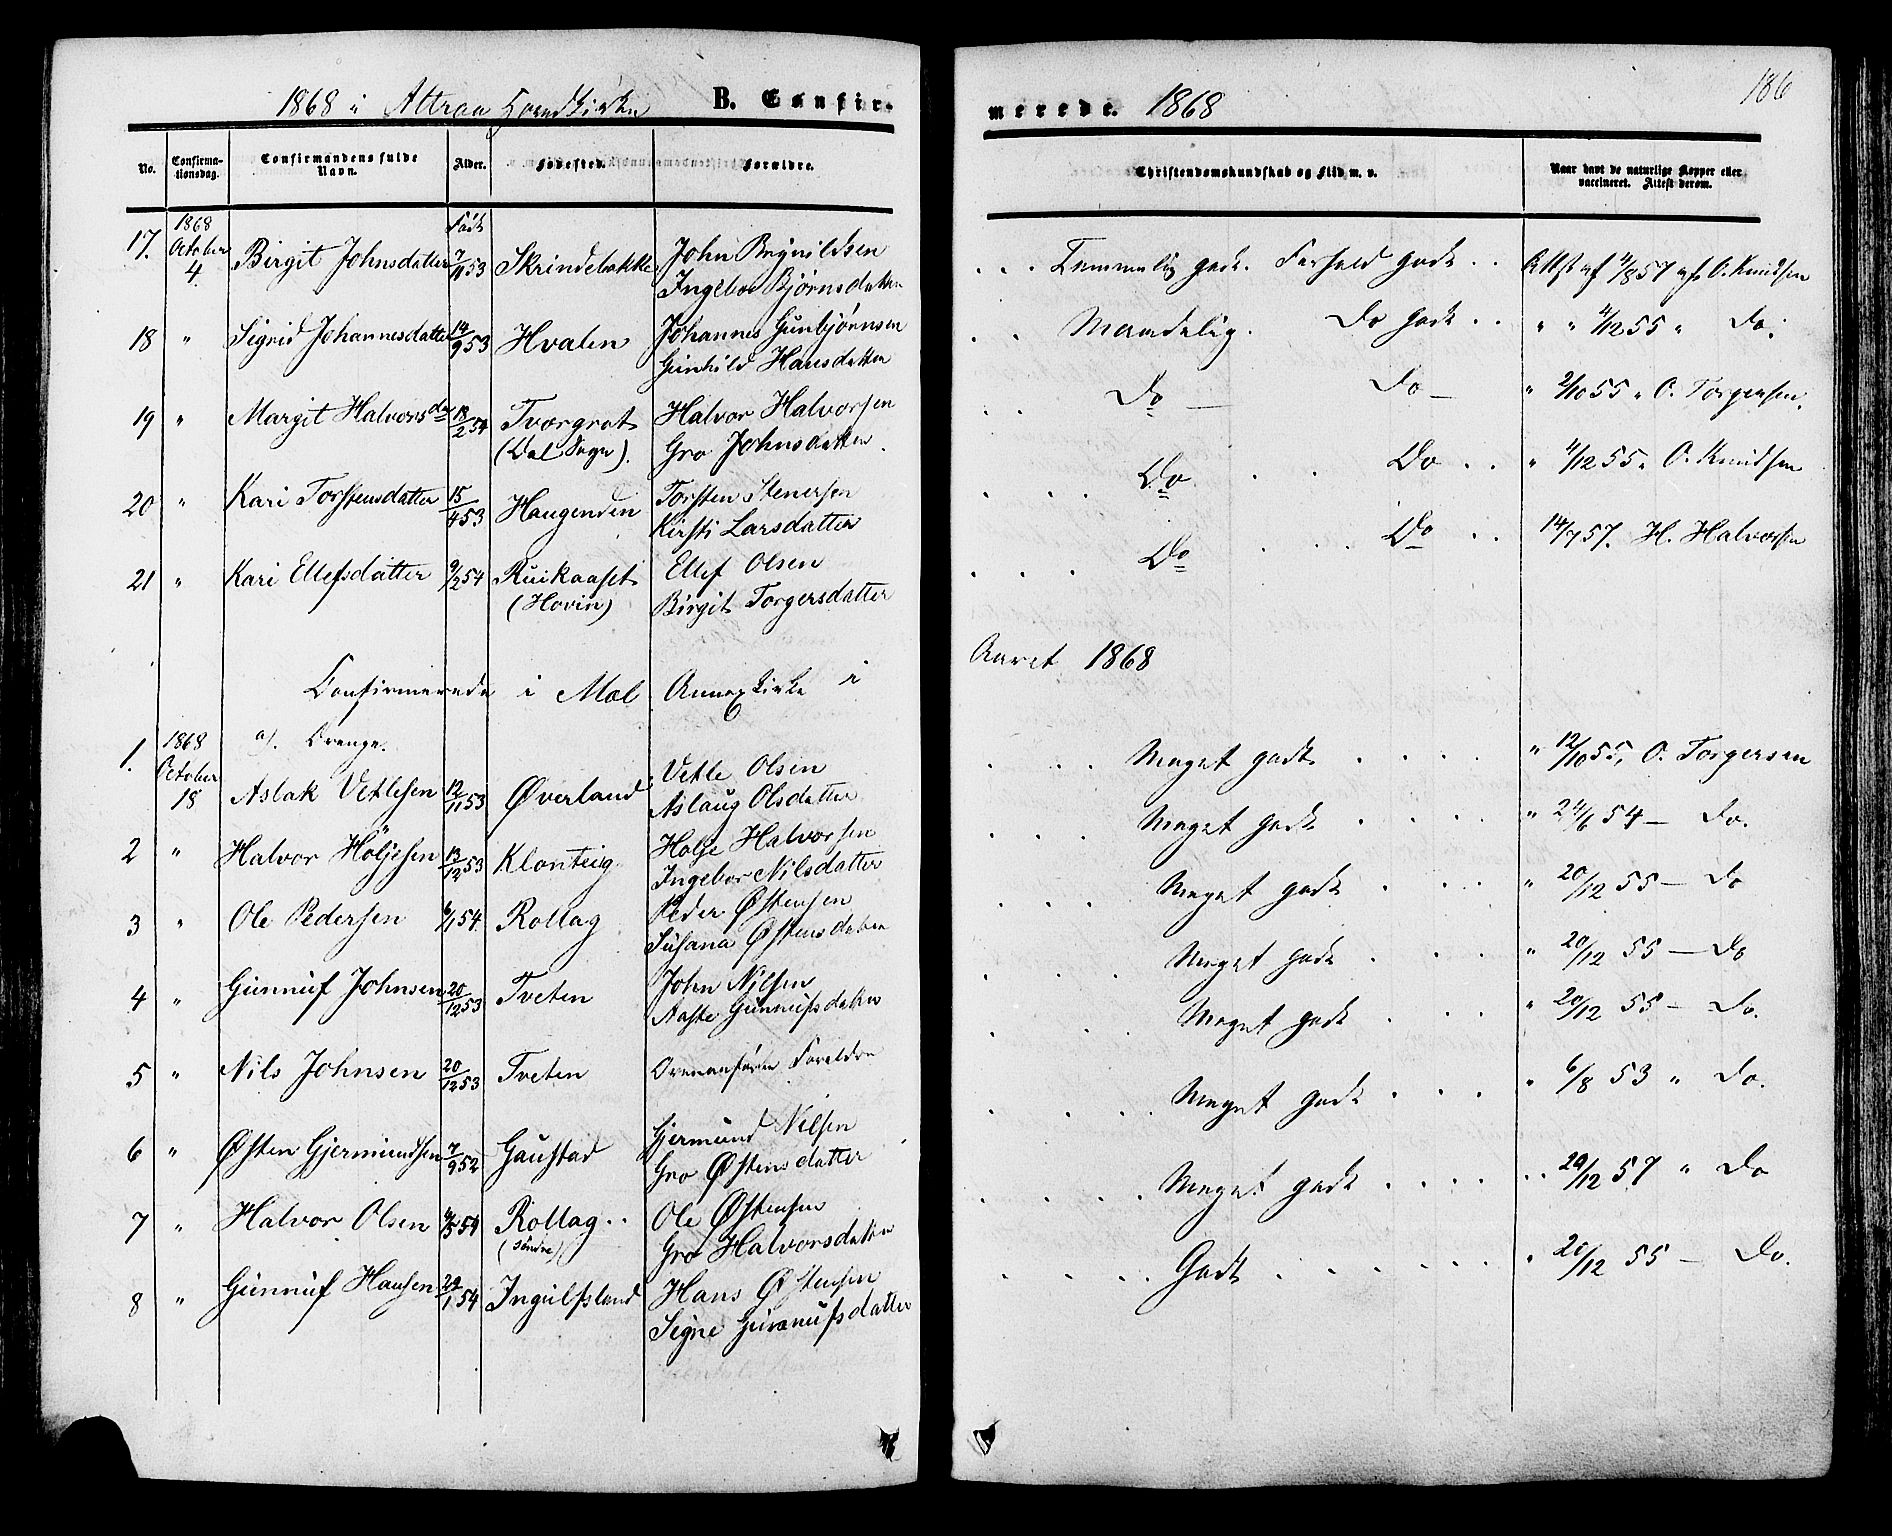 1868 i Attraa Hovedkirke B. Confir-
No. Confirma-tionsdag. Confirmandens fulde Navn. Alder. Fødested. Forældre.
17. 1868 October 4. Birgit Johnsdatter Født 7/11 53 Skrindebakke John Brynildsen
Ingebor Bjørnsdatter
18 " Sigrid Johannesdatter 14/9 53 Hvalen Johannes Gunbjørnsen
Gunhild Hansdatter
19 " Margit Halvorsdr 18/2 54 Tvergrot Halvor Halvorsen
(Dal Sogn). Gro Johnsdatter
20 " Kari Torstensdatter 15/4 53 Haugenden Torsten Stenersen
Kirsti Larsdatter
21 " Kari Ellefsdatter 9/2 54 Ruikaaset Ellef Olsen
(Hovin) Birgit Torgersdatter
Confirmerede i Mæl Annexkirke i
a). Drenge.
1. 1868 October 18 Aslak Vetlesen 12/11 53 Øverland Vetle Olsen
Aslaug Olsdatter
2 " Halvor Höljesen 13/12 53 Klonteig Holje Halvorsen
Ingebor Nilsdatter
3 " Ole Pedersen 6/1 54. Rollag Peder Østensen
Susana Østensdatter
4 " Gunnuf Johnsen 20/12 53 Tveten John Nilsen
Aaste Gunnufsdatter
5 " Nils Johnsen 20/12 53 Tveten Ovenanførte Forældre
6 " Østen Gjermundsen 7/9 52 Gaustad Gjermund Nilsen
Gro Østensdatter
7 " Halvor Olsen 4/3 54 Rollag.. Ole Østensen
(söndre) Gro Halvorsdatter
8 " Gunnuf Hansen 29/1 54 Ingulfsland Hans Østensen
Signe Gunnufsdatter
merede. 1868 186
Christendomskundskab og Flid m. v. Naar havt de naturlige Kopper eller vaccineret. Attest derom.
. . . Temmelig godt. Forhold godt . . Attst af 4/8 57 af O. Knudsen
. . Maadelig. Do godt . . " " 4/12 55 " Do.
. . Do — Do — " 2/10 55 " O. Torgersen.
. . . Do . . Do . . " 4/12 55 " O. Knudsen
. . . . Do . . . Do . . 14/7 57. H. Halvorsen
Aaret 1868
. . . Meget godt . . . . " 12/10 55, O. Torgersen
. . . Meget godt . . . . " 24/6 54 — Do.
. . . Meget godt . . . " 20/12 55 — Do
. . . Meget godt . . . " 20/12 55 — Do
. . . . Meget godt . . . " 20/12 55 — Do.
. . . . Meget godt . . . . " 6/8 53 " Do.
. . . . Meget godt . . . . . . 20/12 57 " Do
. . . . Godt . . . . . . " 20/12 55 — Do.